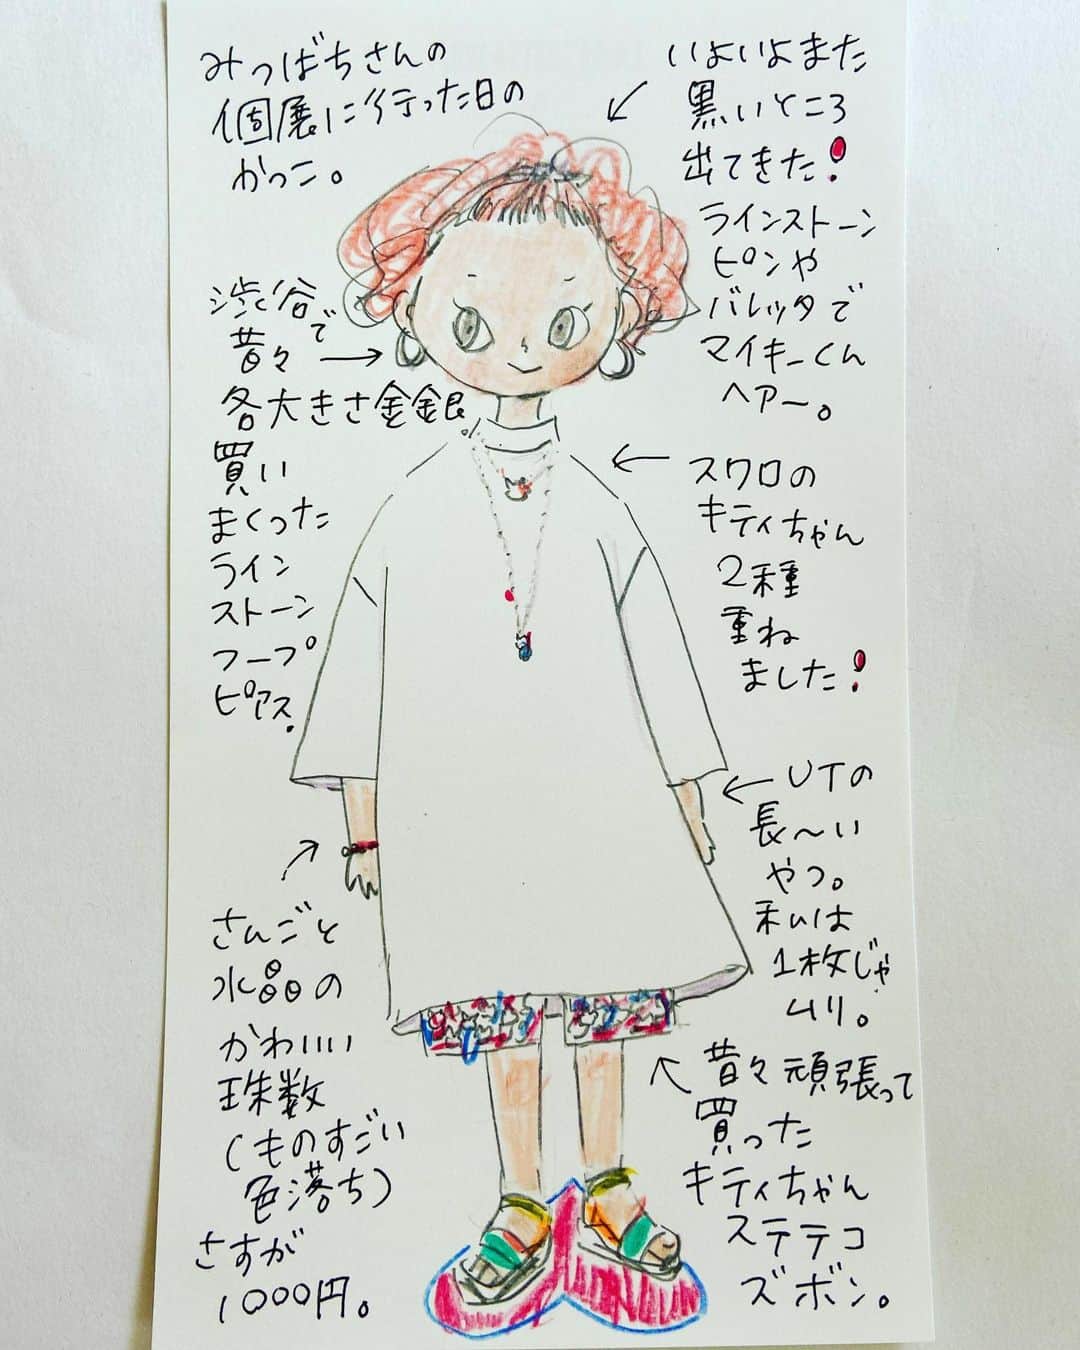 みつばちさんの
個展に行った日の
かっこ。
いよいよまた
黒いところ
出てきた!
ラインストーン
ピンや
バレッタで
マイキーくん
ヘアー。
渋谷で
昔々
各大きさ金銀
買い
まくった
ライン
ストーン
フープ
ピアス.
スワロの
キティちゃん
2種
重ね
ました!
UTの
長〜い
やつ。
私は
1枚じゃ
ムリ。
さんごと
水晶の
かわいい
珠数
(ものすごい
色落ち)
さすが
1000円。
昔々頑張って
買った
キティちゃん
ステテコ
ズボン。